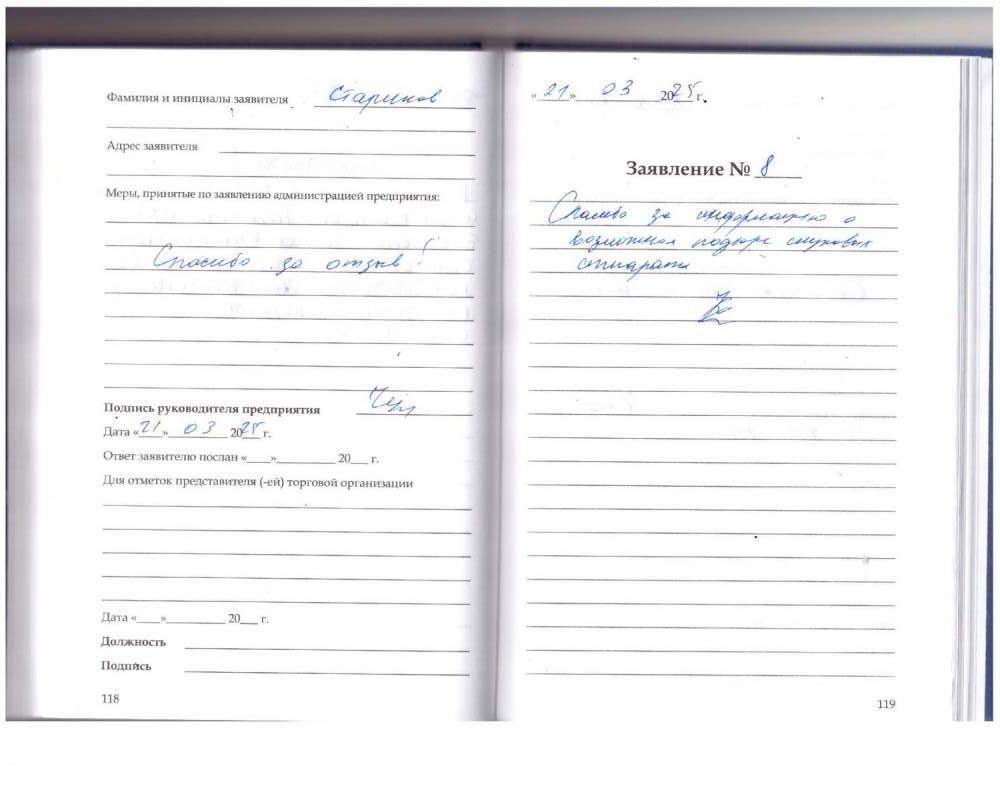 Фамилия и инициалы заявителя Стариков
Адрес заявителя
Меры, принятые по заявлению администрацией предприятия:
Спасибо за отзыв!
Подпись руководителя предприятия
Дата «21» 03 2025 г.
Ответ заявителю послан «____»__________ 20___ г.
Для отметок представителя (-ей) торговой организации
Дата «____»__________ 20___ г.
Должность
Подпись
118
«21» 03 2025 г.
Заявление № 8
Спасибо за информацию о
возможном подборе слуховых
аппаратов
119